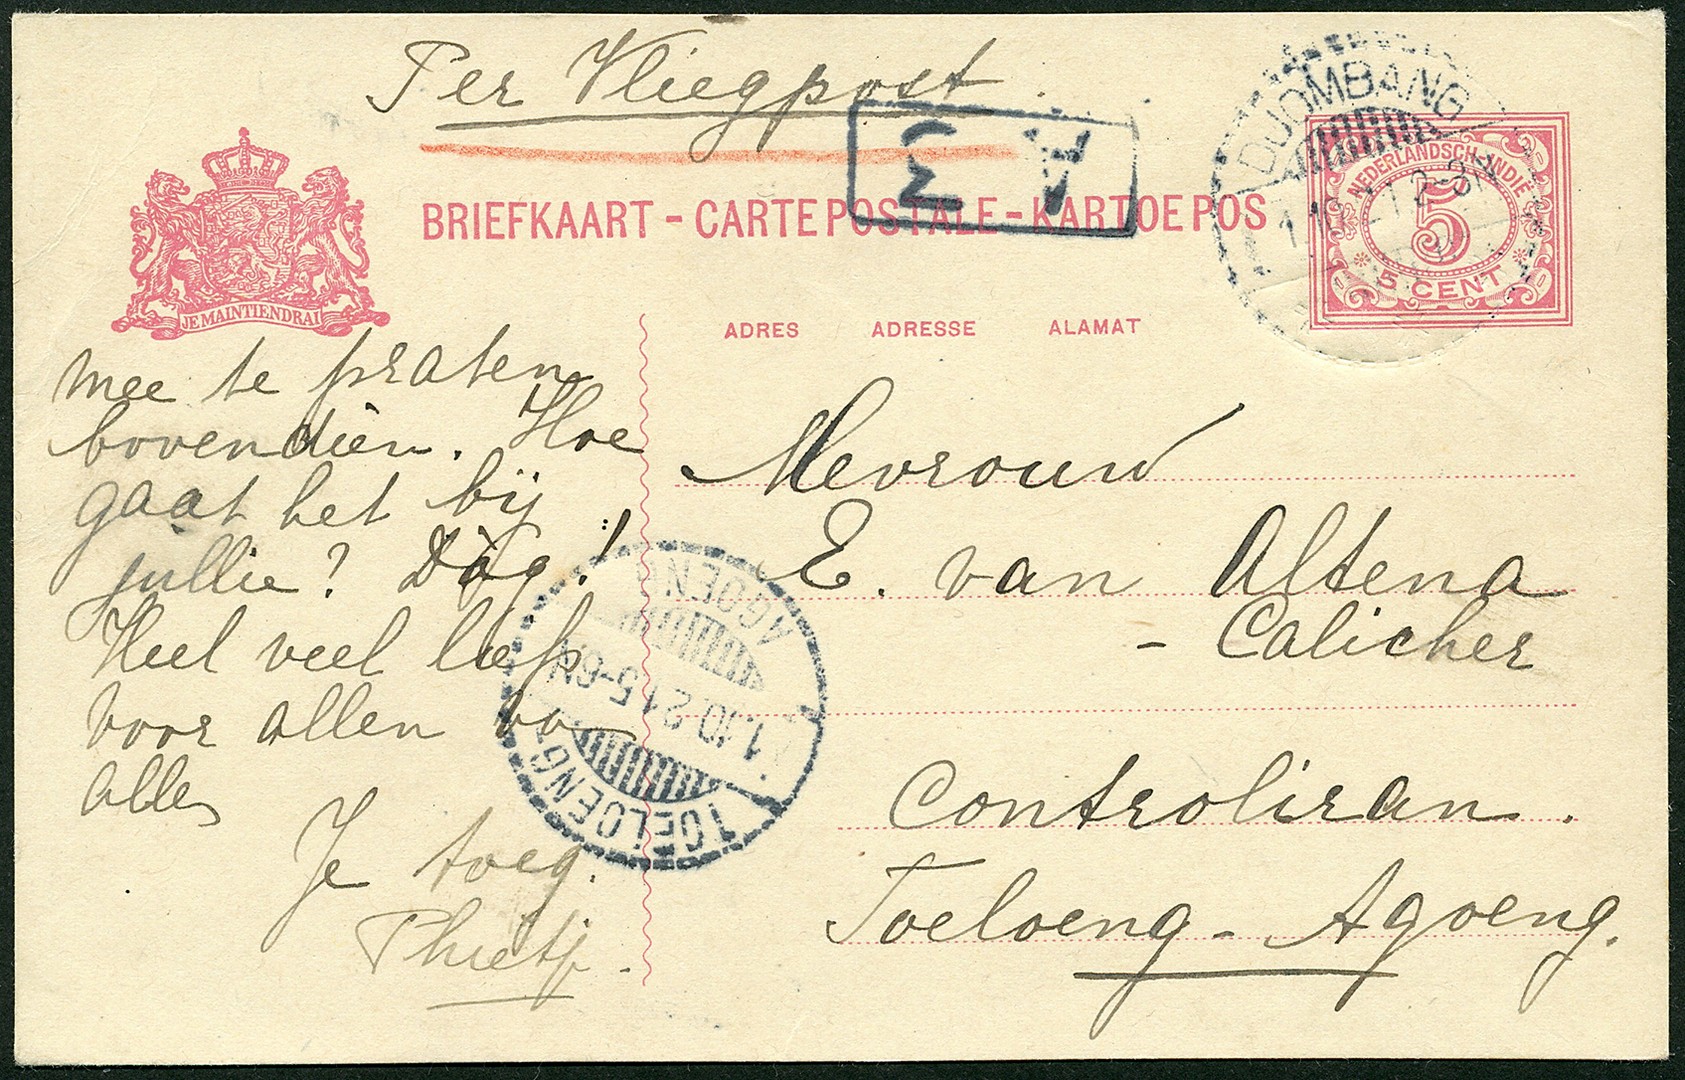 Per Vliegpost
DJOMBANG
1.10.21 2-3N
NEDERLANDSCH-INDIË
5
5 CENT
JE MAINTIENDRAI
BRIEFKAART - CARTE POSTALE - KARTOE POS
ADRES ADRESSE ALAMAT
mee te praten
bovendien. Hoe
gaat het bij
jullie? Dàg!
Heel veel liefs
voor allen va
alles
Je toeg.
Phietj.
Mevrouw
E. van Altena
- Calicher
Controliran.
Toeloeng - Agoeng.
TOELOENG-
AGOENG
1.10.21 5-6N